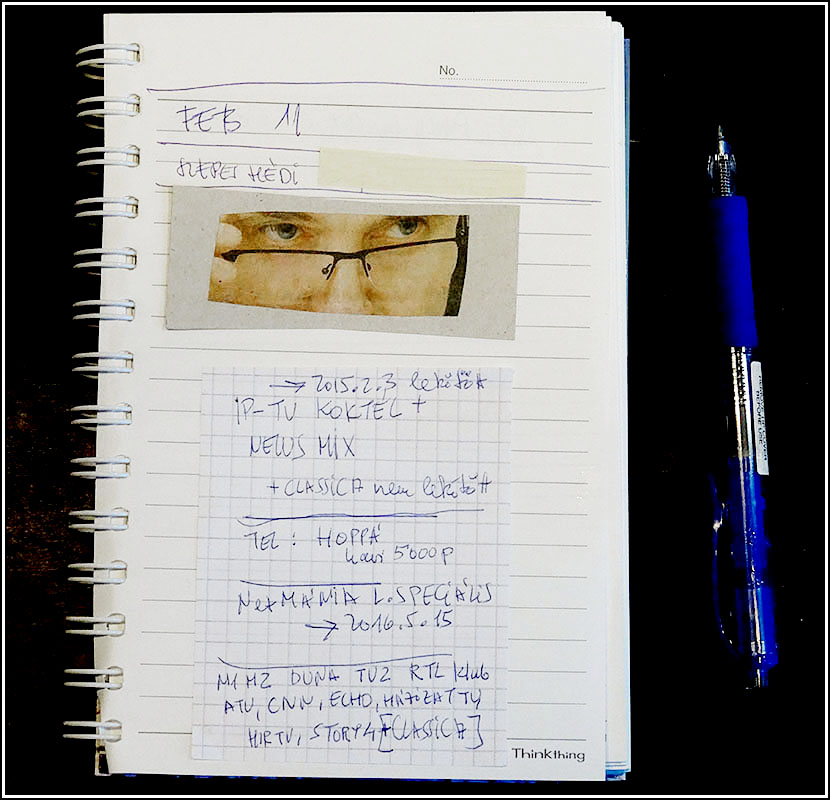 No.
FEB 11
SZEPES HÉDI
→ 2015.2.3 lekötött
IP-TV KOKTEL +
NEWS MIX
+ CLASSICA nem lekötött
TEL : HOPPÁ
havi 5000 p
NetMÁNIA L. SPECIÁLIS
→ 2016.5.15
M1 M2 DUNA TV2 RTL Klub
ATV, CNN, ECHO,
HIRTV, STORY4 [CLASSICA]
Thinkthing